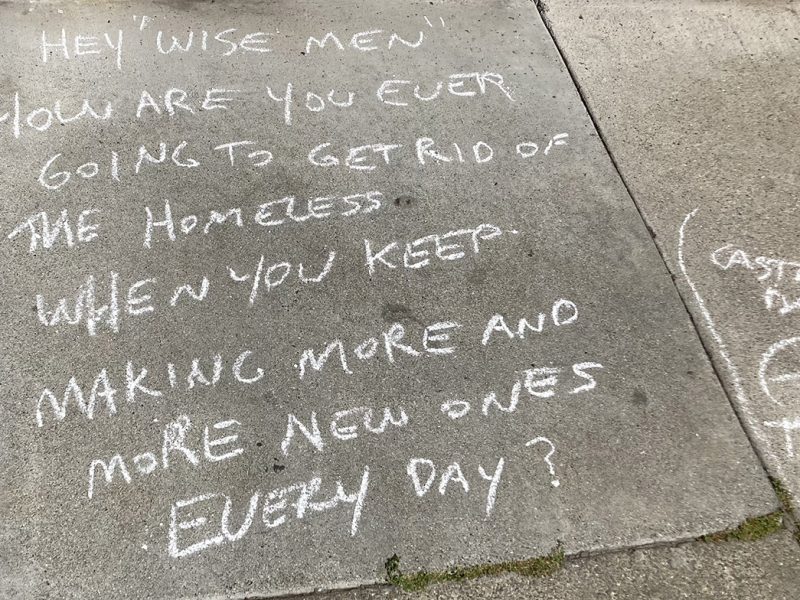 HEY "WISE MEN"
HOW ARE YOU EVER
GOING TO GET RID OF
THE HOMELESS
WHEN YOU KEEP
MAKING MORE AND
MORE NEW ONES
EVERY DAY?